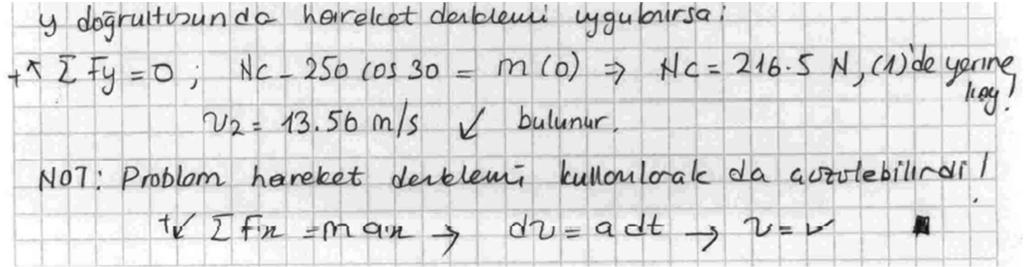 y doğrultusunda hareket denklemi uygulanırsa:
+↖ ΣFy = 0 ; Nc - 250 cos 30 = m (0) ⇒ Nc = 216.5 N, (1)'de yerine
koy!
v2 = 13.56 m/s ↙ bulunur.
NOT: Problem hareket denklemi kullanılarak da çözülebilirdi!
+↙ ΣFx = m ax → dv = a dt → v = ✓